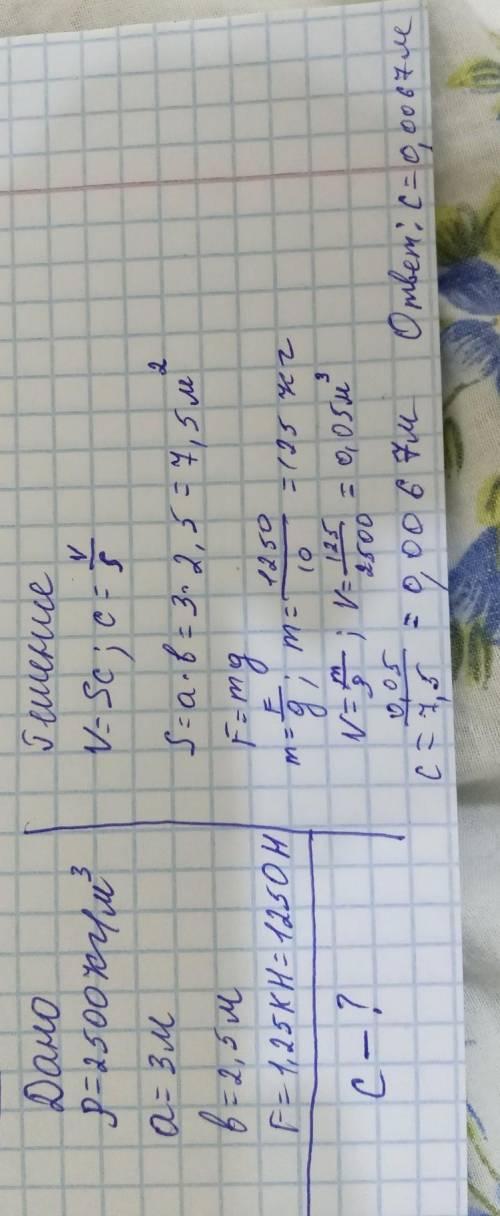 Дано
ρ=2500кг/м³
a=3м
в=2,5м
F=1,25кН=1250Н
C-?
Решение
V=Sc; c=V/S
S=a·в=3·2,5=7,5м²
F=mg
m=F/g; m=1250/10=125 кг
V=m/ρ; V=125/2500=0,05м³
c=0,05/7,5=0,0067м Ответ: c=0,0067м